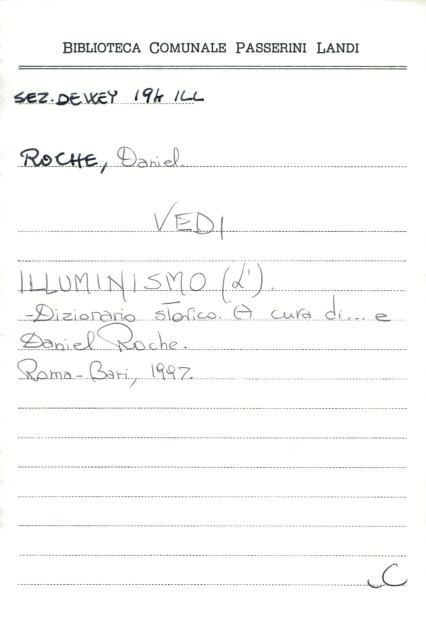 BIBLIOTECA COMUNALE PASSERINI LANDI
SEZ. DEWEY 194 ILL
ROCHE, Daniel.
VEDI
ILLUMINISMO (L').
-Dizionario storico. A cura di... e
Daniel Roche.
Roma-Bari, 1997.
C